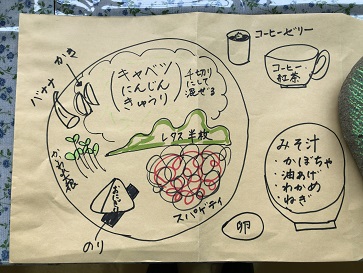 コーヒーゼリー
コーヒー
紅茶
かき
バナナ
キャベツ
にんじん
きゅうり
千切り
にして
混ぜる
レタス半枚
かいわれ大根
スパゲティ
おにぎり
のり
みそ汁
・かぼちゃ
・油あげ
・わかめ
・ねぎ
卵